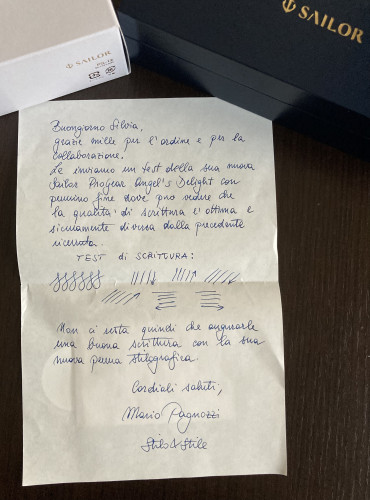 SAILOR
SAILOR
Buongiorno Silvia,
grazie mille per l'ordine e per la
collaborazione.
Le inviamo un test della sua nuova
Sailor ProGear Angel's Delight con
pennino fine dove può vedere che
la qualità di scrittura è ottima e
sicuramente diversa dalla precedente
ricevuta.
TEST di SCRITTURA:
Non ci resta quindi che augurarle
una buona scrittura con la sua
nuova penna stilografica.
Cordiali saluti,
Mario Pagnozzi
Stilo & Stile